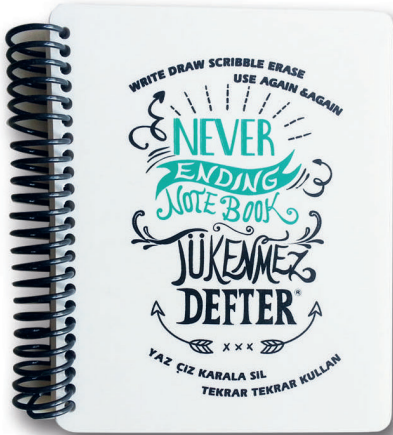 WRITE DRAW SCRIBBLE ERASE
USE AGAIN &AGAIN
NEVER
ENDING
NOTE BOOK
TÜKENMEZ
DEFTER®
x x x
YAZ ÇIZ KARALA SIL
TEKRAR TEKRAR KULLAN